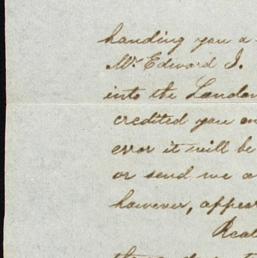 handing you a
Mr. Edward J.
into the London
credited you on
error it will be
or send me a
however, appear